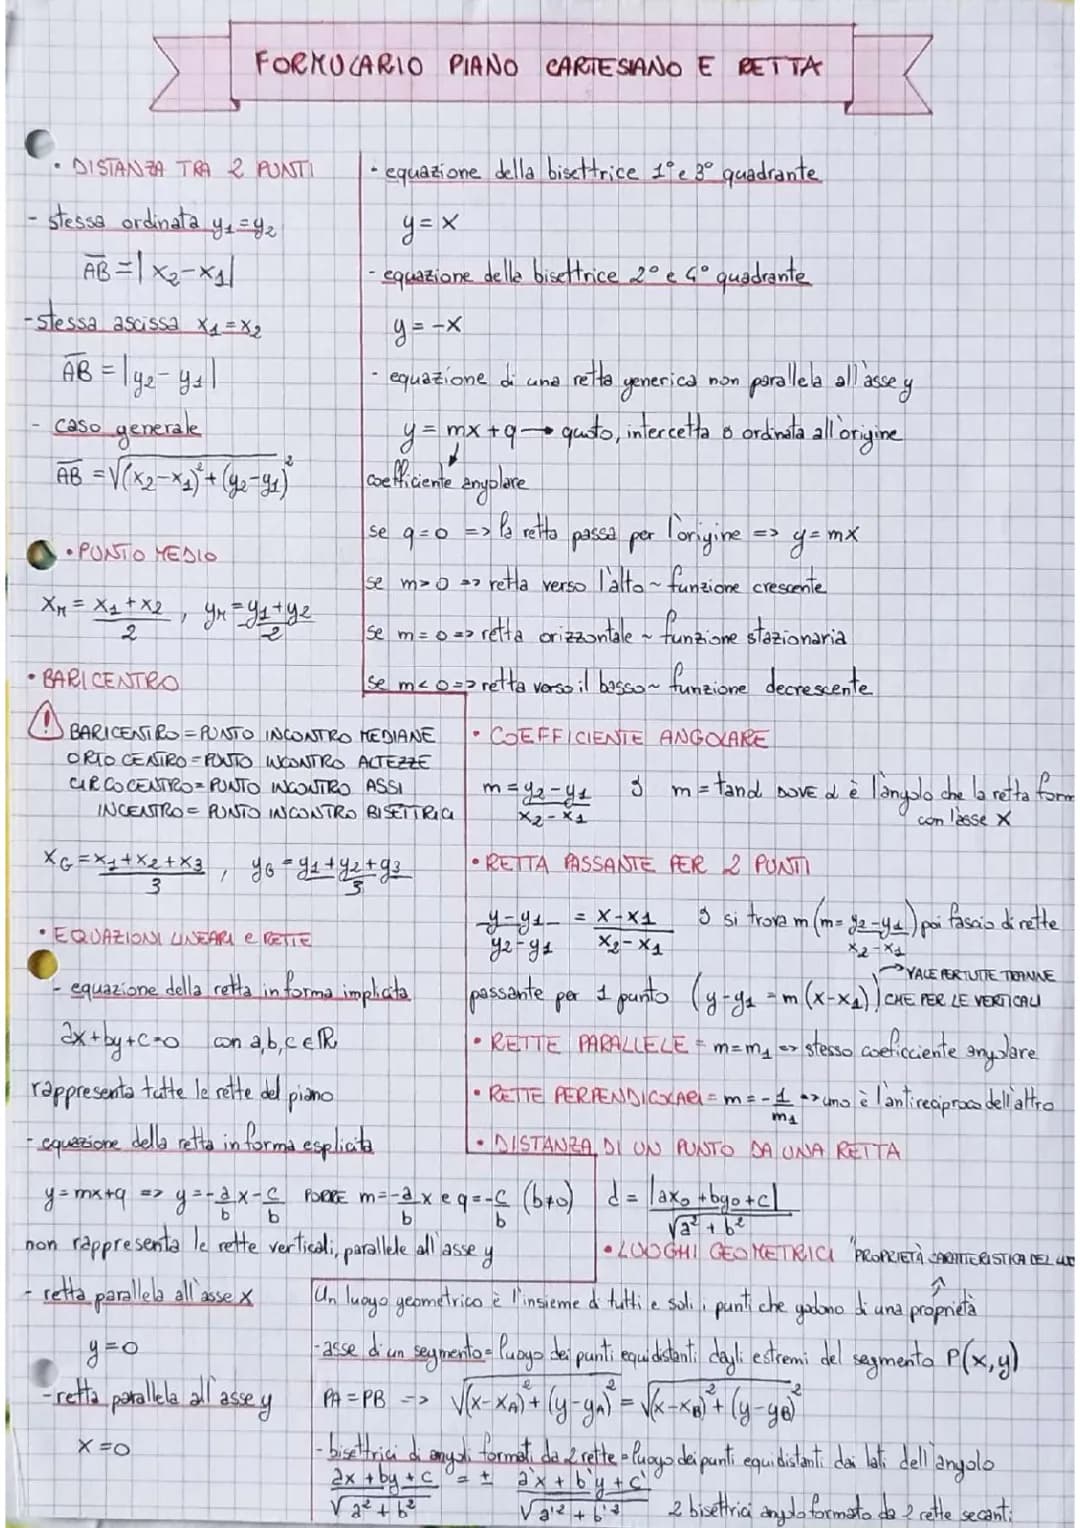 FORMULARIO PIANO CARTESIANO E RETTA
• DISTANZA TRA 2 PUNTI
- stessa ordinata y₁=y₂
AB = |x₂-x₁|
- stessa ascissa x₁=x₂
AB = |y₂-y₁|
- caso generale
AB = √(x₂-x₁)²+(y₂-y₁)²
• PUNTO MEDIO
x_M = x₁+x₂/2 , y_M = y₁+y₂/2
• BARICENTRO
! BARICENTRO = PUNTO INCONTRO MEDIANE
ORTOCENTRO = PUNTO INCONTRO ALTEZZE
CIRCOCENTRO = PUNTO INCONTRO ASSI
INCENTRO = PUNTO INCONTRO BISETTRICI
x_G = x₁+x₂+x₃/3 , y_G = y₁+y₂+y₃/3
• EQUAZIONI LINEARI e RETTE
- equazione della retta in forma implicita
ax+by+c=0 con a,b,c ∈ ℝ
rappresenta tutte le rette del piano
- equazione della retta in forma esplicita
y=mx+q => y=-a/b x - c/b PORRE m=-a/b x e q=-c/b (b≠0)
non rappresenta le rette verticali, parallele all'asse y
- retta parallela all'asse x
y=0
- retta parallela all'asse y
x=0
• equazione della bisettrice 1° e 3° quadrante
y = x
- equazione della bisettrice 2° e 4° quadrante
y = -x
- equazione di una retta generica non parallela all'asse y
y = mx + q → quoto, intercetta o ordinata all'origine
coefficiente angolare
se q=0 => la retta passa per l'origine => y=mx
se m>0 => retta verso l'alto ~ funzione crescente
se m=0 => retta orizzontale ~ funzione stazionaria
se m<0 => retta verso il basso ~ funzione decrescente
• COEFFICIENTE ANGOLARE
m = y₂-y₁/x₂-x₁ o m = tanα DOVE α è l'angolo che la retta form
con l'asse x
• RETTA PASSANTE PER 2 PUNTI
y-y₁/y₂-y₁ = x-x₁/x₂-x₁ o si trova m (m= y₂-y₁/x₂-x₁) poi fascio di rette
→ VALE PER TUTTE TRANNE
passante per 1 punto (y-y₁ = m(x-x₁)) CHE PER LE VERTICALI
• RETTE PARALLELE = m=m₁ => stesso coeficciente angolare
• RETTE PERPENDICOLARI = m = -1/m₁ => uno è l'antireciproco dell'altro
• DISTANZA DI UN PUNTO DA UNA RETTA
d = |ax₀+by₀+c|/√a²+b²
• LUOGHI GEOMETRICI "PROPRIETÀ CARATTERISTICA DEL
Un luogo geometrico è l'insieme di tutti e soli i punti che godono di una proprietà
- asse di un segmento = luogo dei punti equidistanti dagli estremi del segmento P(x,y)
PA = PB => √(x-x_A)²+(y-y_A)² = √(x-x_B)²+(y-y_B)²
- bisettrici di angoli formati da 2 rette = luogo dei punti equidistanti dai lati dell'angolo
ax+by+c/√a²+b² = ± a'x+b'y+c'/√a'²+b'²
2 bisettrici angolo formato da 2 rette secanti